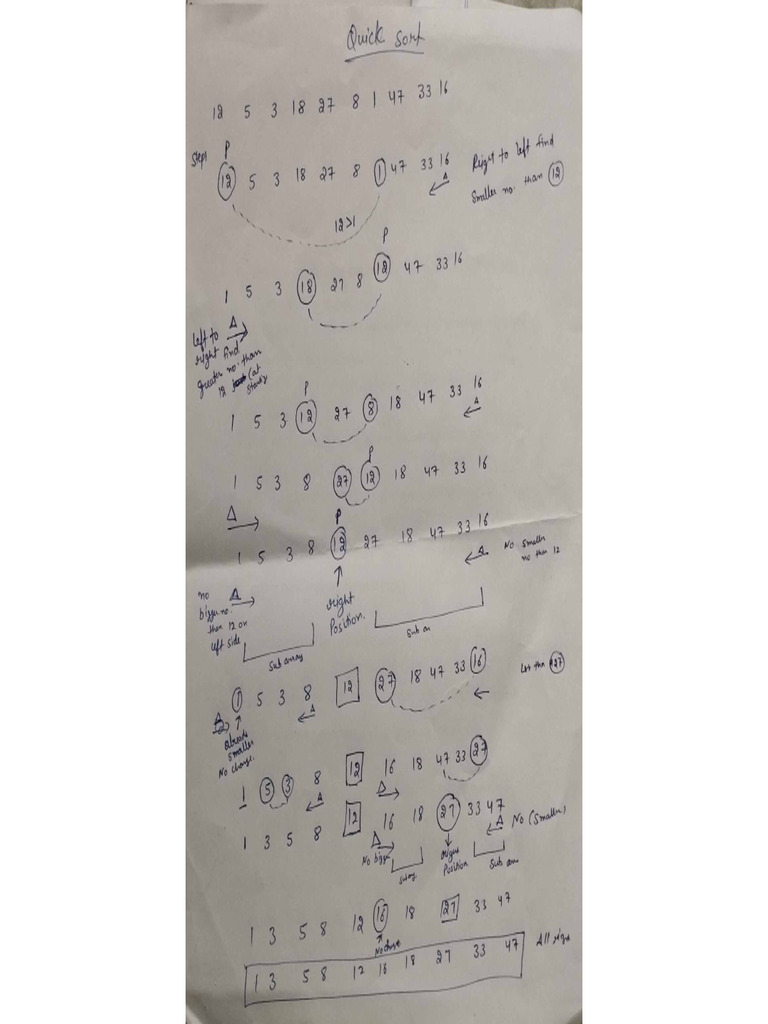 Quick Sort
12 5 3 18 27 8 1 47 33 16
Steps P
12 5 3 18 27 8 1 47 33 16
Right to left find
smaller no. than 12
12>1
P
1 5 3 18 27 8 12 47 33 16
left to
right find
greater no. than
12 (at
start)
P
1 5 3 12 27 8 18 47 33 16
P
1 5 3 8 27 12 18 47 33 16
P
1 5 3 8 12 27 18 47 33 16
No smaller
no than 12
no
bigger no.
than 12 on
left side
right
Position.
Sub array
Sub arr
1 5 3 8 12 27 18 47 33 16
27
already
smaller
No change.
1 5 3 8 12 16 18 47 33 27
1 3 5 8 12 16 18 27 33 47
No (smaller)
No bigger
right
Position
Sub arr
1 3 5 8 12 16 18 27 33 47
1 3 5 8 12 16 18 27 33 47
All